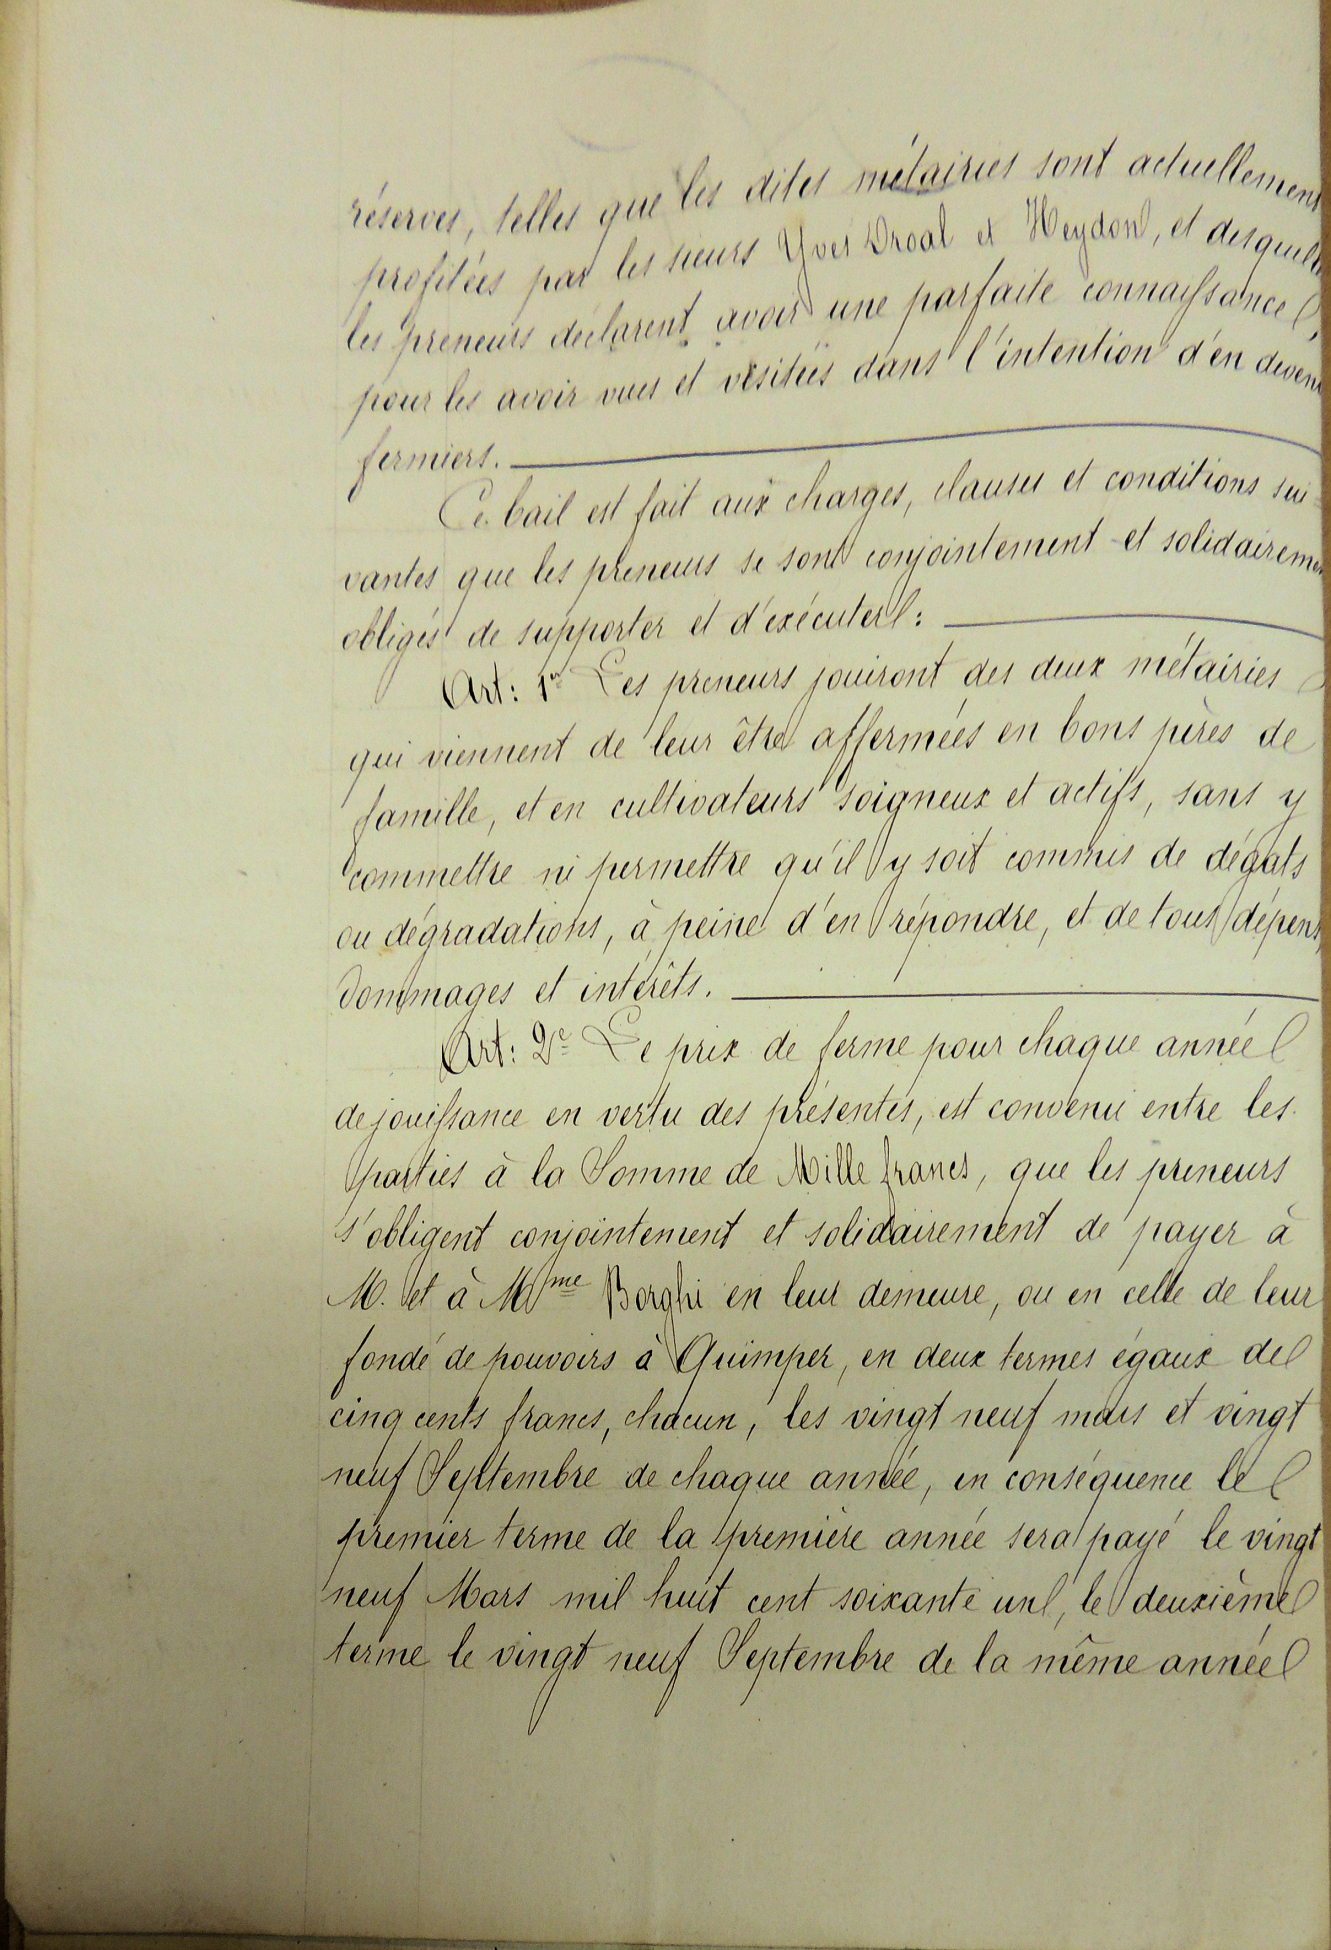 réserves, telles que les dites métairies sont actuellement
profitées par les sieurs Yves Droal et Heydon, et desquelles
les preneurs déclarent avoir une parfaite connaissance,
pour les avoir vues et visitées dans l'intention d'en devenir
fermiers.
Ce bail est fait aux charges, clauses et conditions sui-
vantes que les preneurs se sont conjointement et solidairement
obligés de supporter et d'exécuter :
Art: 1er Les preneurs jouiront des deux métairies
qui viennent de leur être affermées en bons pères de
famille, et en cultivateurs soigneux et actifs, sans y
commettre ni permettre qu'il y soit commis de dégats
ou dégradations, à peine d'en répondre, et de tous dépens,
dommages et intérêts.
Art: 2e Le prix de ferme pour chaque année
de jouissance en vertu des présentes, est convenu entre les
parties à la Somme de Mille francs, que les preneurs
s'obligent conjointement et solidairement de payer à
M. et à Mme Borghi en leur demeure, ou en celle de leur
fondé de pouvoirs à Quimper, en deux termes égaux de
cinq cents francs, chacun, les vingt neuf mars et vingt
neuf Septembre de chaque année, en conséquence le
premier terme de la première année sera payé le vingt
neuf Mars mil huit cent soixante un, le deuxième
terme le vingt neuf Septembre de la même année